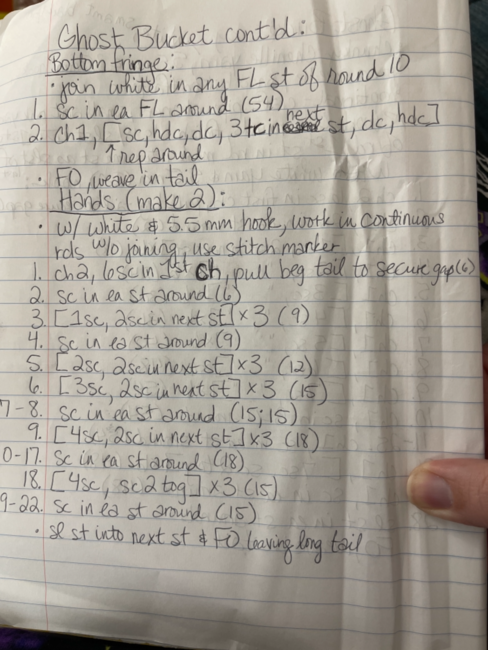 Ghost Bucket cont'd:
Bottom fringe:
· join white in any FL st of round 10
1. sc in ea FL around (54)
2. ch1, [sc, hdc, dc, 3tc in next st, dc, hdc]
↑ rep around
· FO, weave in tail
Hands (make 2):
· w/ white & 5.5mm hook, work in continuous
rds w/o joining, use stitch marker
1. ch2, 6sc in 1st ch, pull beg tail to secure gap (6)
2. sc in ea st around (6)
3. [1sc, 2sc in next st] x 3 (9)
4. sc in ea st around (9)
5. [2sc, 2sc in next st] x 3 (12)
6. [3sc, 2sc in next st] x 3 (15)
7-8. sc in ea st around (15; 15)
9. [4sc, 2sc in next st] x3 (18)
0-17. sc in ea st around (18)
18. [4sc, sc2tog] x 3 (15)
9-22. sc in ea st around (15)
· sl st into next st & FO leaving long tail